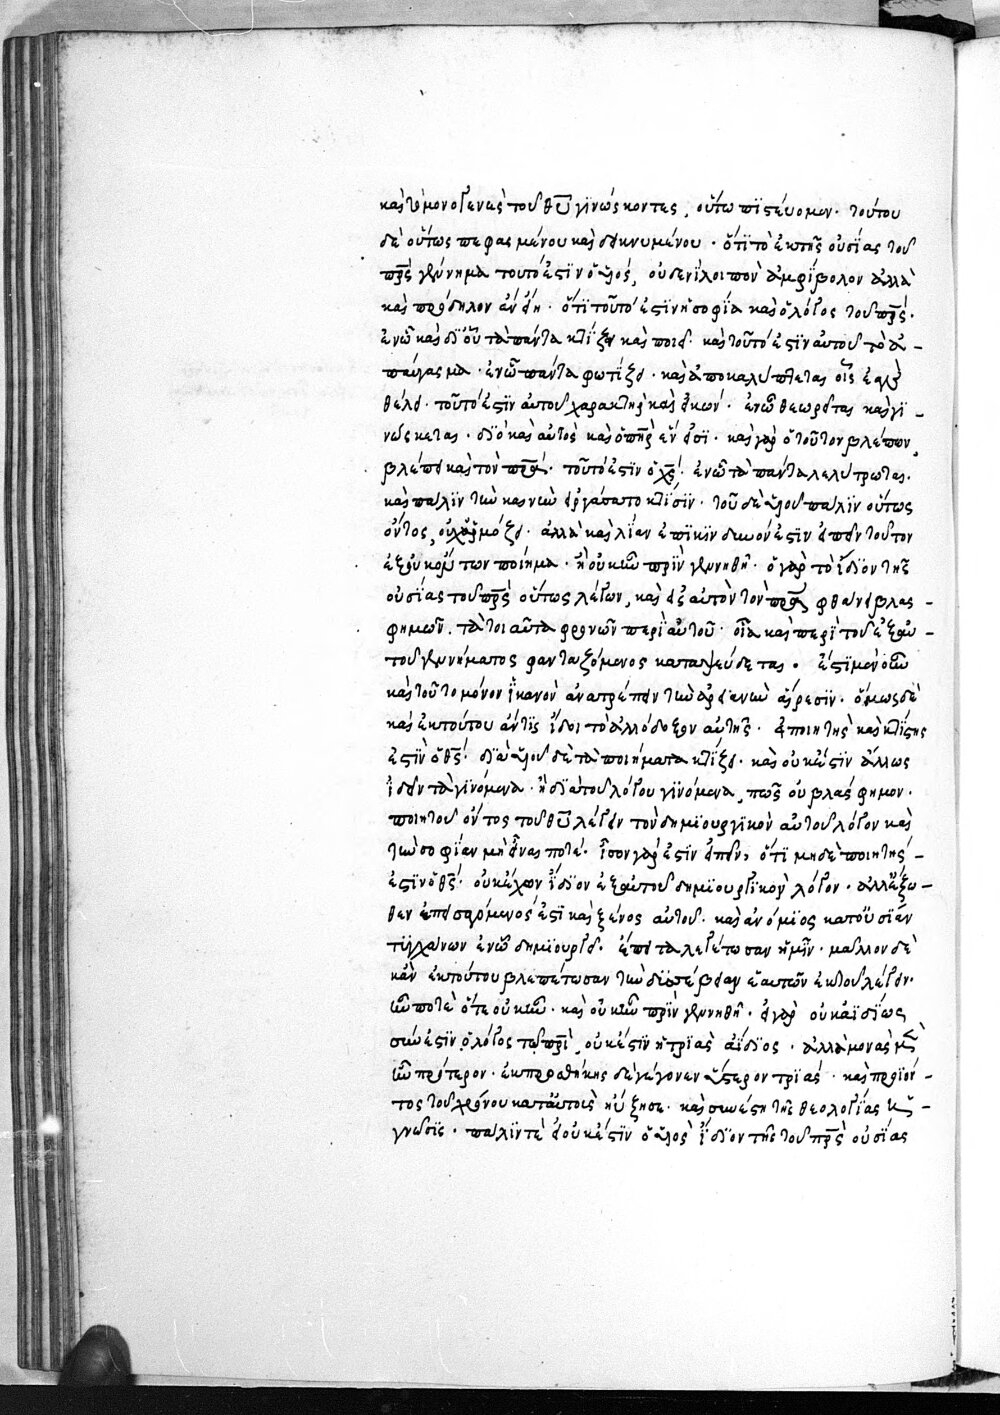 καὶ τὸ μονογενὲς τοῦ θῡ γινώσκοντες, οὕτω πιστεύομεν· τούτου
δὲ οὕτως πεφασμένου καὶ δεικνυμένου· ὅτι τὸ ἐκ τῆς οὐσίας τοῦ
πρ̅ς γέννημα τοῦτό ἐστιν ὁ υἱός, οὐδενὶ λοιπὸν ἀμφίβολον ἀλλὰ
καὶ πρόδηλον ἂν εἴη· ὅτι τοῦτό ἐστιν ἡ σοφία καὶ ὁ λόγος τοῦ πρ̅ς·
ἐν ᾧ καὶ δι' οὗ τὰ πάντα κτίζει καὶ ποιεῖ· καὶ τοῦτό ἐστιν αὐτοῦ τὸ ἀ-
παύγασμα· ἐν ᾧ πάντα φωτίζει· καὶ ἀποκαλύπτεται οἷς ἐὰν
θέλει· τοῦτό ἐστιν αὐτοῦ χαρακτὴρ καὶ εἰκών· ἐν ᾧ θεωρεῖται καὶ γι-
νώσκεται· διὸ καὶ αὐτὸς καὶ ὁ πη̅ρ ἕν εἰσι· καὶ γὰρ ὁ τοῦτον βλέπων,
βλέπει καὶ τὸν πρ̅α· τοῦτό ἐστιν ὁ χ̅ς· ἐν ᾧ τὰ πάντα λελύτρωται·
καὶ πάλιν τὴν καινὴν εἰργάσατο κτίσιν· τοῦ δὲ υἱοῦ πάλιν οὕτως
ὄντος, οὐχ ἁρμόζει· ἀλλὰ καὶ λίαν ἐπικίνδυνόν ἐστιν εἰπεῖν τοῦτον
ἐξ οὐκ ὄντων ποίημα· ἢ οὐκ ἦν πρὶν γεννηθῇ· ὁ γὰρ τὸ ἴδιον τῆς
οὐσίας τοῦ πρ̅ς οὕτως λέγων, καὶ εἰς αὐτὸν τὸν πρ̅α φθάνει βλασ-
φημῶν. τὰ τοιαῦτα φρονῶν περὶ αὐτοῦ· οἷα καὶ περὶ τοῦ ἐξ αὐ-
τοῦ γεννήματος φανταζόμενος καταψεύδεται. ἔστι μὲν οὖν
καὶ τοῦτο μόνον ἱκανὸν ἀνατρέπειν τὴν ἀρειανὴν αἵρεσιν· ὅμως δὲ
καὶ ἐκ τούτου ἄν τις ἴδοι τὸ ἀλλόδοξον αὐτῆς· εἰ ποιητὴς καὶ κτίστης
ἐστὶν ὁ θ̅ς· διὰ υἱοῦ δὲ τὰ ποιήματα κτίζει· καὶ οὐκ ἔστιν ἄλλως
ἰδεῖν τὰ γινόμενα· ἢ διὰ τοῦ λόγου γινόμενα, πῶς οὐ βλάσφημον·
ποιητοῦ ὄντος τοῦ θῡ λέγειν τὸν δημιουργικὸν αὐτοῦ λόγον καὶ
τὴν σοφίαν μὴ εἶναί ποτε· ἴσον γάρ ἐστιν εἰπεῖν, ὅτι μηδὲ ποιητής
ἐστιν ὁ θ̅ς· οὐκ ἔχων ἴδιον ἐξ αὐτοῦ δημιουργικὸν λόγον· ἀλλ' ἔξω-
θεν ἐπεισαγόμενός ἐστι καὶ ξένος αὐτοῦ· καὶ ἀνόμοιος κατ' οὐσίαν
τυγχάνων ἐν ᾧ δημιουργεῖ· ἔπειτα λεγέτωσαν ἡμῖν· μᾶλλον δὲ
κἂν ἐκ τούτου βλεπέτωσαν τὴν δυσσέβειαν ἑαυτῶν ἐκ τοῦ λέγειν·
ἦν ποτὲ ὅτε οὐκ ἦν· καὶ οὐκ ἦν πρὶν γεννηθῇ· εἰ γὰρ οὐκ ἀϊδίως
σύνεστιν ὁ λόγος τῷ πρ̅ί, οὐκ ἔστιν ἡ τριὰς ἀΐδιος· ἀλλὰ μονὰς μὲν
ἦν πρότερον· ἐκ προσθήκης δὲ γέγονεν ὕστερον τριάς· καὶ προϊόν-
τος τοῦ χρόνου κατ' αὐτοὺς ηὔξησε· καὶ συνέστη τῆς θεολογίας ἡ
γνῶσις· πάλιν τε εἰ οὐκ ἔστιν ὁ υἱὸς ἴδιον τῆς τοῦ πρ̅ς οὐσίας